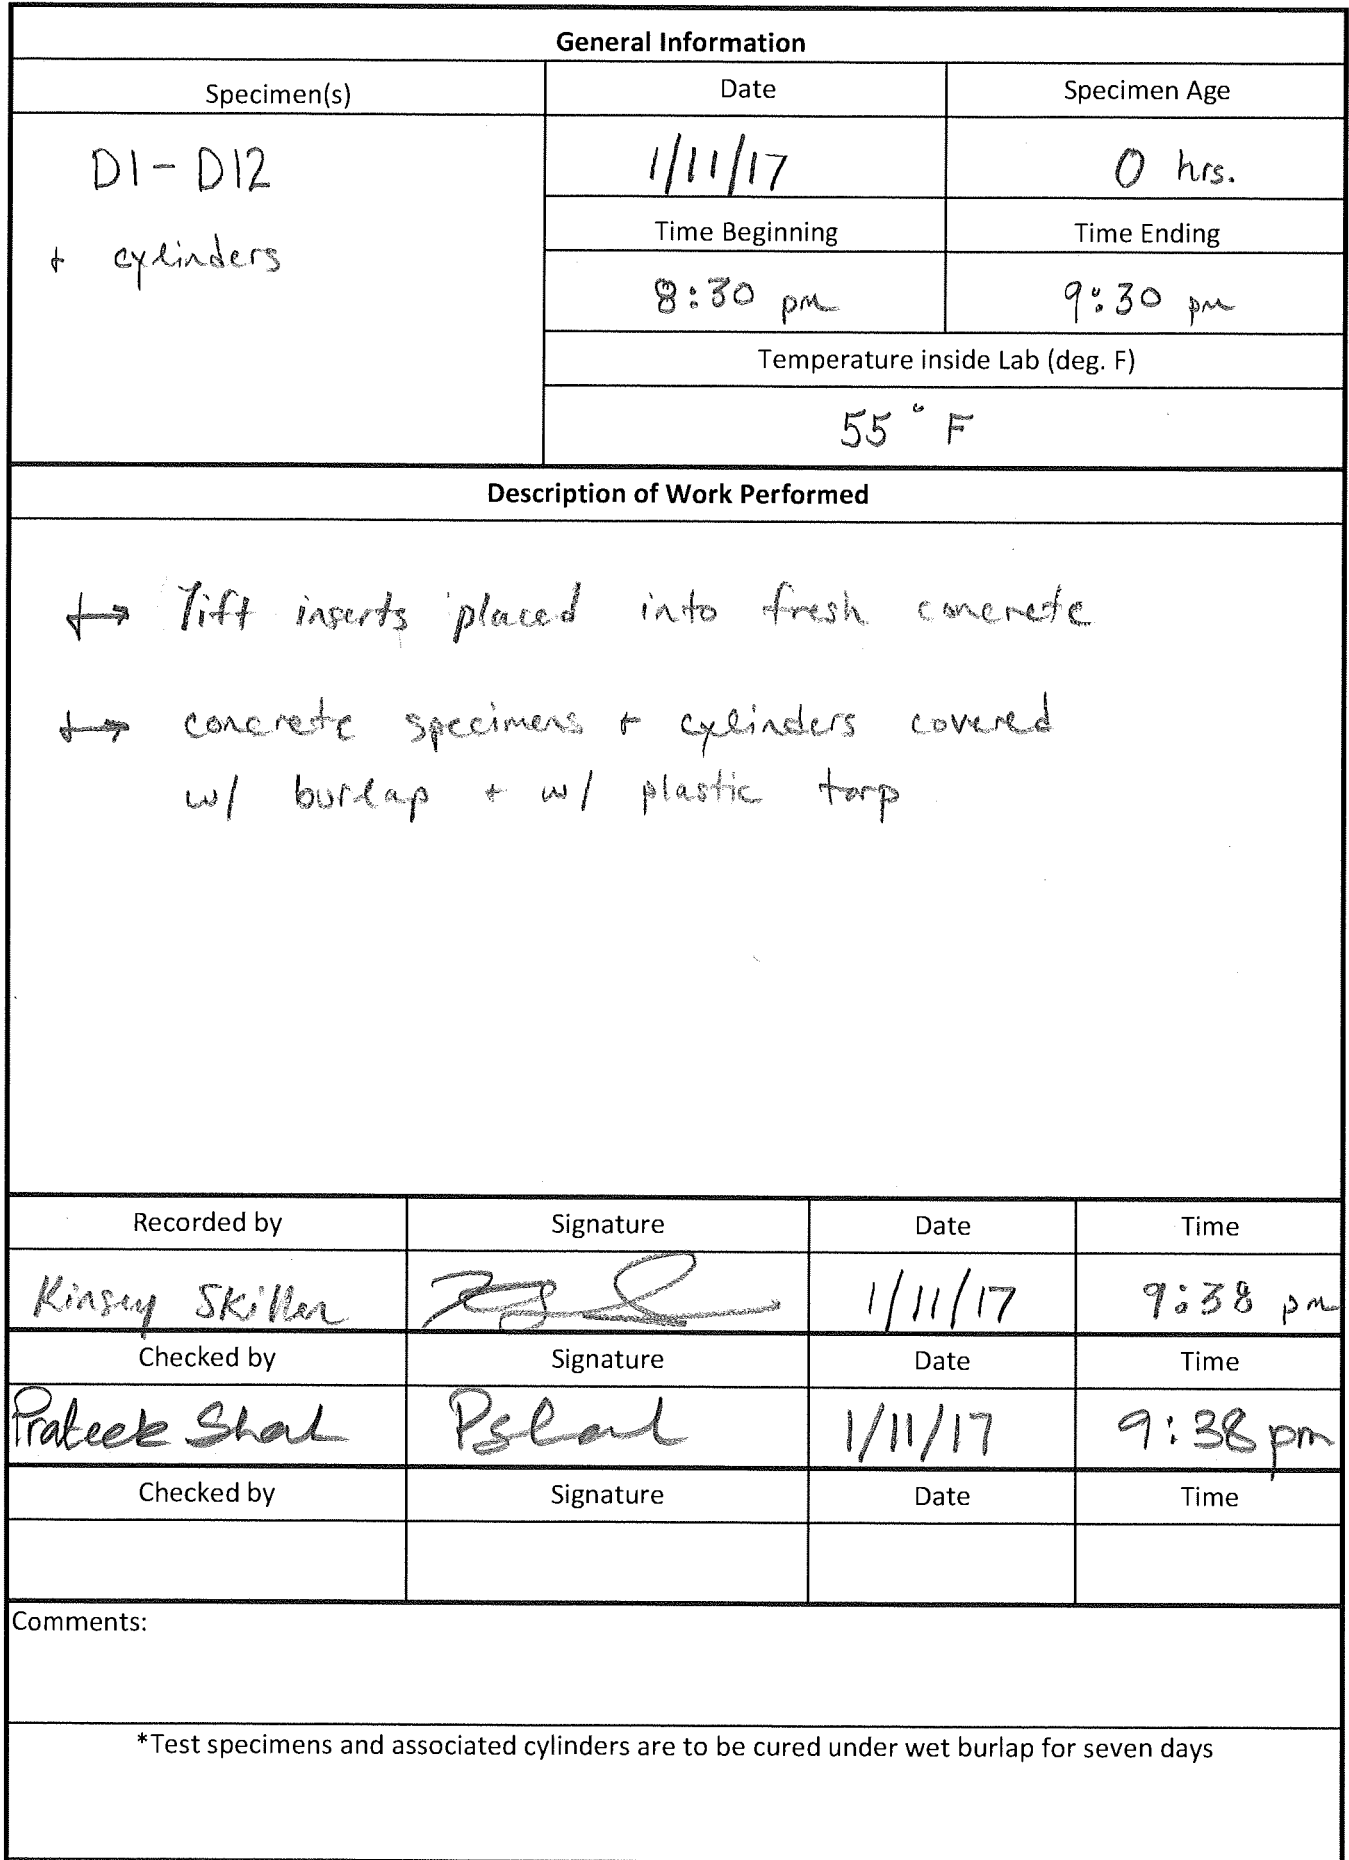 General Information
Specimen(s) Date Specimen Age
D1 - D12 1/11/17 0 hrs.
+ cylinders
Time Beginning Time Ending
8:30 pm 9:30 pm
Temperature inside Lab (deg. F)
55° F
Description of Work Performed
↦ lift inserts placed into fresh concrete
↦ concrete specimens + cylinders covered
w/ burlap + w/ plastic tarp
Recorded by Signature Date Time
Kinsey Skillen 1/11/17 9:38 pm
Checked by Signature Date Time
Prateek Shah PShah 1/11/17 9:38 pm
Checked by Signature Date Time
Comments:
*Test specimens and associated cylinders are to be cured under wet burlap for seven days